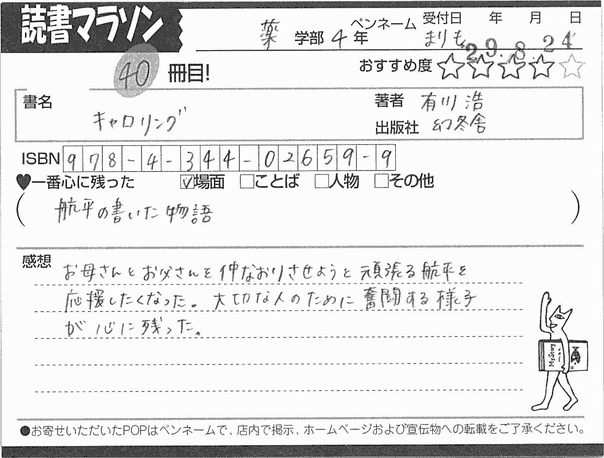 読書マラソン
薬 学部 4 年 ペンネーム まりも 受付日 年 月 日
29.8.24
40 冊目! おすすめ度 ☆☆☆☆☆
書名 キャロリング
著者 有川 浩
出版社 幻冬舎
ISBN 978-4-344-02659-9
♥一番心に残った ☑場面 □ことば □人物 □その他
(航平の書いた物語)
感想
お母さんとお父さんを仲なおりさせようと頑張る航平を
応援したくなった。大切な人のために奮闘する様子
が心に残った。
●お寄せいただいたPOPはペンネームで、店内で掲示、ホームページおよび宣伝物への転載をご了承ください。